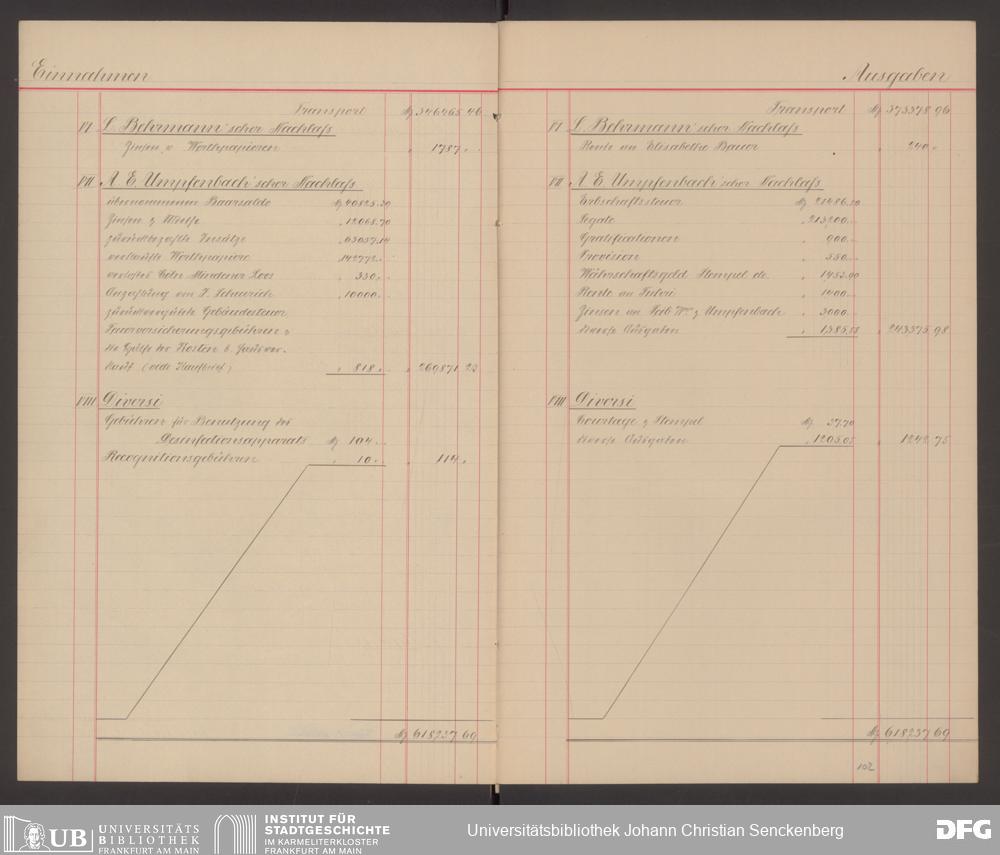 Einnahmen
Transport M 346465 46
VI L. Behrmann'scher Nachlaß
Zinsen v. Werthpapieren " 1787 "
VII A. E. Umpfenbach'scher Nachlaß
übernommener Baarsaldo M 40825.29
Zinsen & Miethe " 12068.70
zurückbezahlte Insätze " 63057.14
verkaufte Werthpapiere " 142772.-
verlostes Cöln Mindener Loos " 330.-
Anzahlung von 10000.-
zurückvergütete Gebäudesteuer
Feuerversicherungsgebühren &
die Hälfte der Kosten b. Hausver-
kauf (vide Kaufbrief) " 818.- " 269871 23
VIII Diversi
Gebühren für Benutzung des
Desinfectionsapparats M 104.-
Recognitionsgebühren " 10.- " 114 "
M 618237 69
Ausgaben
Transport M 373378 96
VI L. Behrmann'scher Nachlaß
Rente an Elisabethe Bauer " 240 "
VII A. E. Umpfenbach'scher Nachlaß
Erbschaftssteuer M 21486.50
Legate " 213200.-
Gratificationen " 900.-
Provision " 550.-
Währschaftsgeld Stempel etc. " 1453.90
Rente an 1400.-
Zinsen an Umpfenbach " 3000.-
diverse Ausgaben " 1385.58 " 243375 98
VIII Diversi
Courtage & Stempel M 37.70
diverse Ausgaben " 1205.05 " 1242 75
M 618237 69
102
UB UNIVERSITÄTS
BIBLIOTHEK
FRANKFURT AM MAIN
INSTITUT FÜR
STADTGESCHICHTE
IM KARMELITERKLOSTER
FRANKFURT AM MAIN
Universitätsbibliothek Johann Christian Senckenberg
DFG